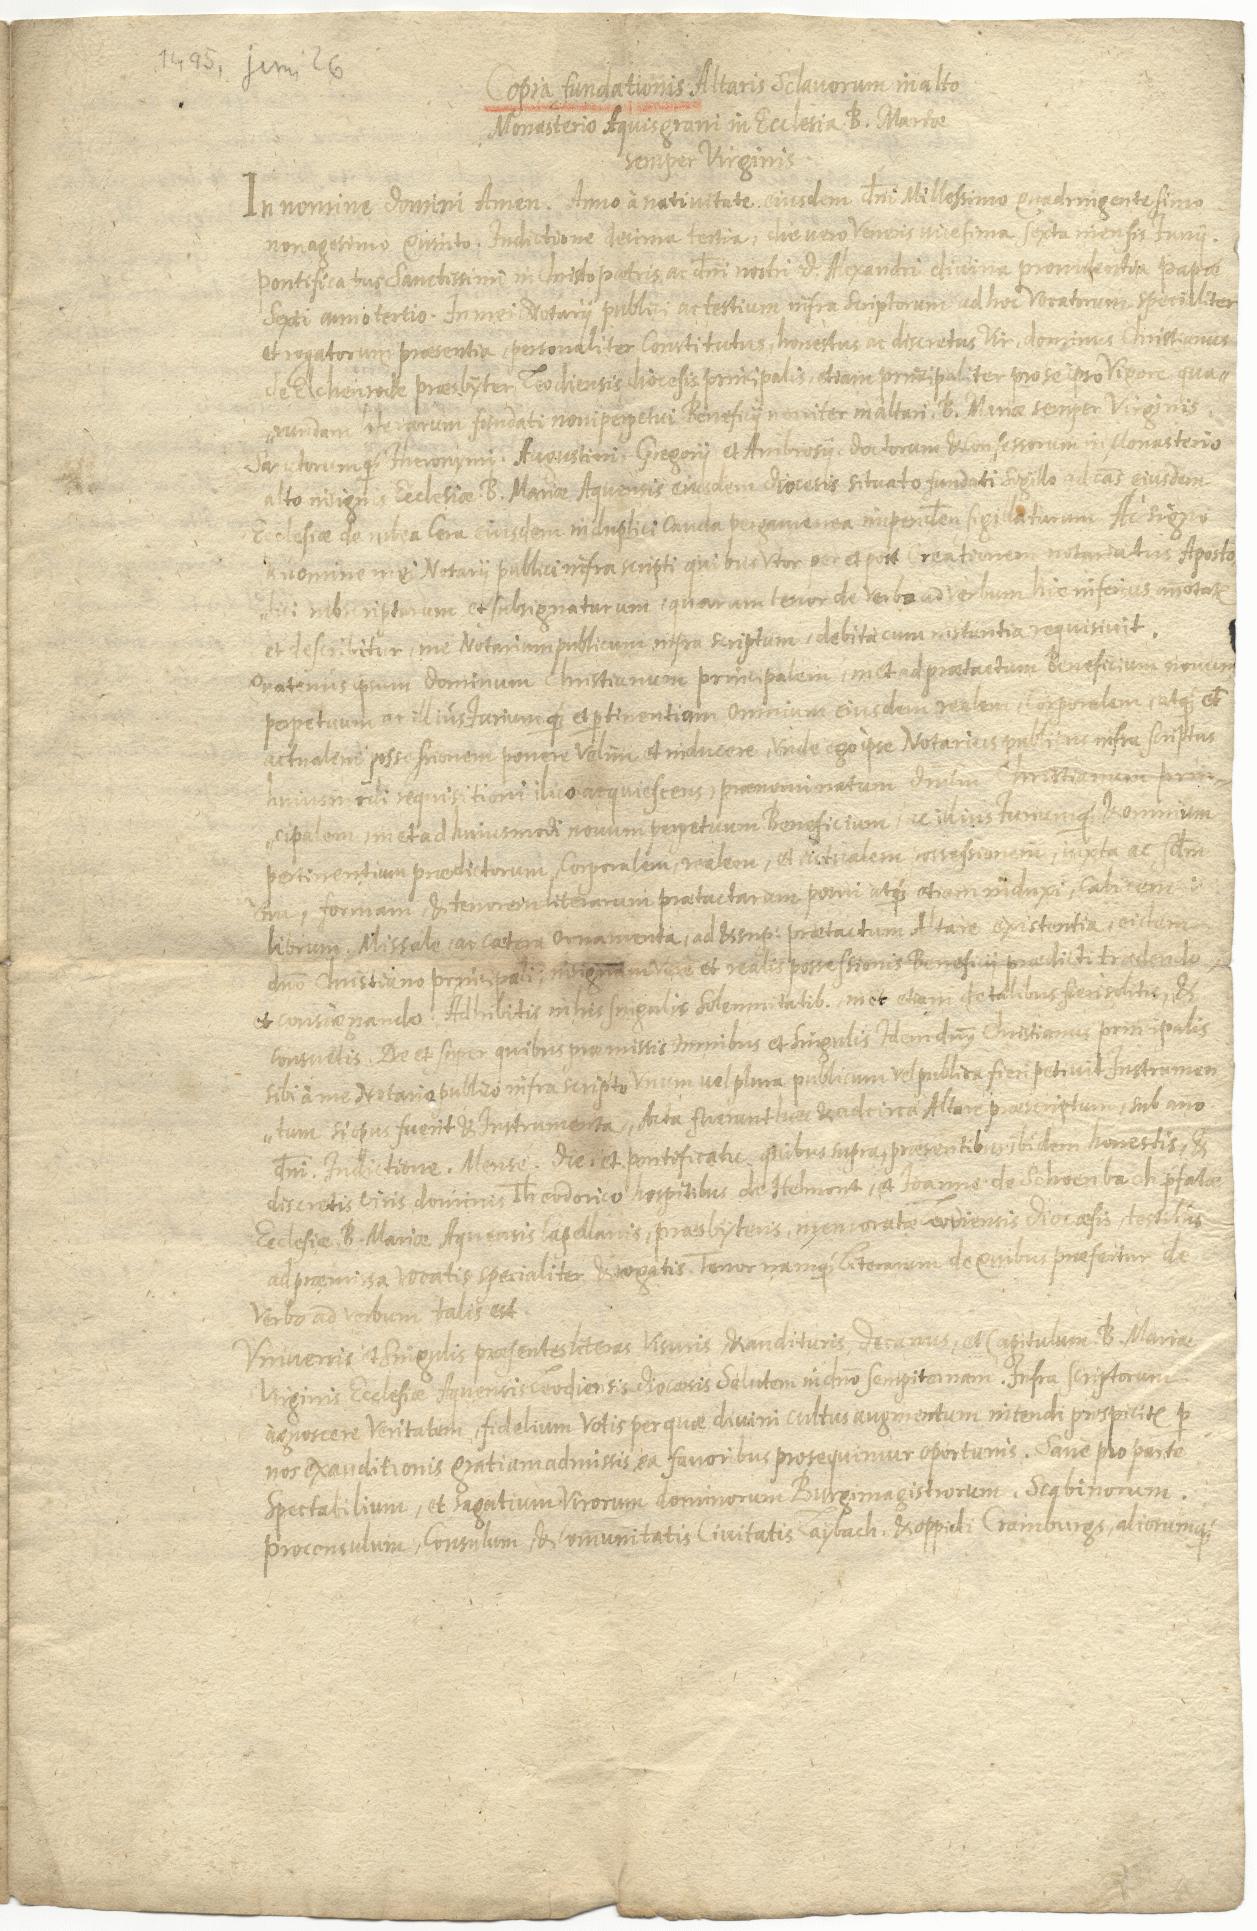 1495, juni 26
Copia fundationis Altaris Sclavorum in alto
Monasterio Aquisgrani in Ecclesia B. Mariæ
semper Virginis.
In nomine Domini Amen. Anno à nativitate eiusdem d̄ni Millessimo quadringentesimo
nonagesimo quinto. Indictione decima tertia, die vero Veneris vicesima sexta mensis Junij.
Pontificatus Sanctissimi in Christo patris ac d̄ni nostri D. Alexandri divina providentia papæ
Sexti anno tertio. In mei Notarij publici ac testium infra scriptorum ad hoc Vocatorum specialiter
et rogatorum præsentia, personaliter Constitutus, honestus ac discretus Vir, dominus Christianus
de Elchenrode præsbyter Leodiensis diocesis principalis, etiam principaliter pro se ipso Vigore qua„
„rundam literarum fundati novi perpetui Beneficij noviter in altari B. Mariæ semper Virginis,
Sanctorumq́ Hieronymi, Augustini, Gregorij et Ambrosij doctorum & confessorum in Monasterio
alto insignis Ecclesiæ B. Mariæ Aquensis eiusdem diocesis situato fundati Sigillo ad cās eiusdem
Ecclesiæ de rubea Cera eiusdem in duplici Cauda pergamenea impenden sigillaturum Ac signo
a nomine mei Notarij publici infra scripti quibus Vtor per et post Creationem notariatus Aposto
„lici subscriptarum et subsignaturum, quarum tenor de verbo ad verbum hic inferius annotat
et describitur, me Notarium publicum infra scriptum, debita cum instantia requisivit,
Quatenus ipsum dominum Christianum principalem, in et ad prætactum Beneficium novum
perpetuum ac illius Jurium q́ et ptinentiam omnium eiusdem realem, Corporalem, atq́ et
actualem possessionem ponere Velim et inducere, Vnde ego ipse Notarius publicus infra scriptus
huiusmodi requisitioni acquiescens, prænominatum dnūm Christianum prin„
„cipalem, in et ad huiusmodi novum perpetuum Beneficium, ac illius Juriumq́ & omnium
pertinentium prædictorum, Corporalem, realem, et actualem possessionem, iuxta ac
formam, & tenorem literarum prætactarum posui atq́ etiam induxi, Calicem
librum, Missale, ac cætera ornamenta, ad & sup: prætactum Altare existentia, eidem
dnō Christiano principali, in signum veræ et realis possessionis Beneficij prædicti tradendo
et consignando. Adhibitis in his singulis Solemnitatib. in et etiam de talibus fieri solitis, &
consuetis. De et super quibus præmissis omnibus et singulis Idem dn̄s Christianus principalis
sibi à me Notario publico infra scripto Vnum vel plura publicum vel publica fieri petivit Instrumen
„tum si opus fuerit & Instrumenta, Acta fuerunt hæc & ad circa Altare præscriptum, sub ano
d̄ni. Indictione. Mense. Die. et pontificatu quibus supra, præsentibus ibidem honestis, &
discretis Viris dominis Theodorico hospitibus de Helmont, et Joanne de Schoenbach pfatæ
Ecclesiæ B. Mariæ Aquensis Capellanis, præsbyteris, memoratæ Leodiensis diocæsis, testibus
ad præmissa Vocatis specialiter & rogatis. Tenor namq́ literarum de quibus præfertur de
Verbo ad verbum talis est.
Vniversis et Singulis præsentes literas Visuris & audituris, Decanus, et Capitulum B. Mariæ
Virginis Ecclesiæ Aquensis Leodiensis diocæsis Salutem in dnō sempiternam. Infra scriptorum
agnoscere Veritatem, fidelium Votis per quæ divini cultus augmentum intendi prospicit p
nos exauditionis gratiam admissis, ea favoribus prosequimur oportunis. Sane pro parte
Spectabilium, et sagatium Virorum dominorum Burgimagistrorum. Scabinorum.
proconsulum, Consulum, & Comunitatis Civitatis Laybach. & oppidi Crainburgs, aliorumq́